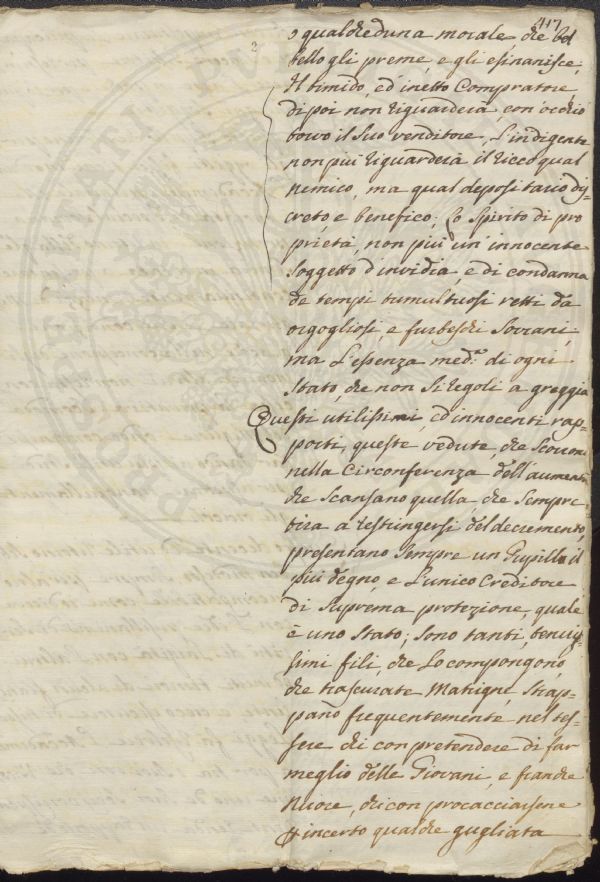 417
o qualche duna morale, che bel
bello gli preme, e gli esinanisce,
Il timido, ed inetto Compratore
di poi non riguarderà con occhio
torvo il suo venditore, L'indigente
non più riguarderà il ricco qual
nemico, ma qual depositario dis=
creto, e benefico; Lo Spirito di pro
prietà, non più un innocente
soggetto d'invidia e di condanna
de tempi tumultuosi retti da
orgogliosi, e furbeschi Sovrani,
ma L'essenza med.ª di ogni
Stato, che non si regoli a greggia
Questi utilissimi, ed innocenti rap=
porti, queste vedute, che scorrono
nella Circonferenza dell'aumento
che scansano quella, che sempre
tira a restringersi del decremento,
presentano sempre un Pupillo il
più degno, e L'unico Creditore
di suprema protezione, quale
è uno Stato; sono tanti, tenuis=
simi fili, che Lo compongono,
che trascurate Matrigne, strap=
pano frequentemente nel tes=
sere chi con pretendere di far
meglio delle Giovani, e franche
Nuore, chi con procacciarsene
incerto qualche gugliata